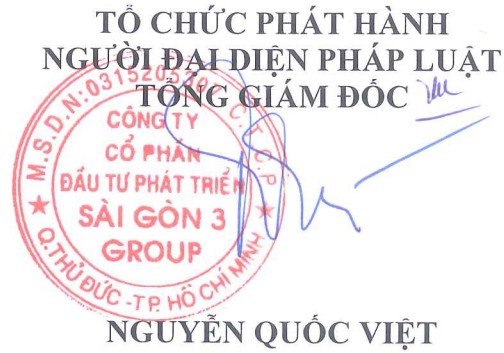 TỔ CHỨC PHÁT HÀNH
NGƯỜI ĐẠI DIỆN PHÁP LUẬT
TỔNG GIÁM ĐỐC
CÔNG TY
CỔ PHẦN
ĐẦU TƯ PHÁT TRIỂN
SÀI GÒN 3
GROUP
M.S.D.N: C.T.C.P
Q.THỦ ĐỨC -TP. HỒ CHÍ MINH
NGUYỄN QUỐC VIỆT